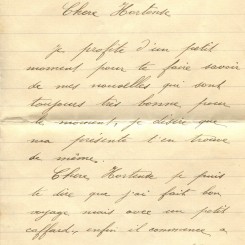 Chere Hortense
Je profite d'un petit
moment pour te faire savoir
de mes nouvelles qui sont
toujours très bonne pour
le moment, je désire que
ma présente t'en trouve
de même.
Chere Hortense je puis
te dire que j'ai fait bon
voyage mais avec un petit
caffard, enfin il commence a